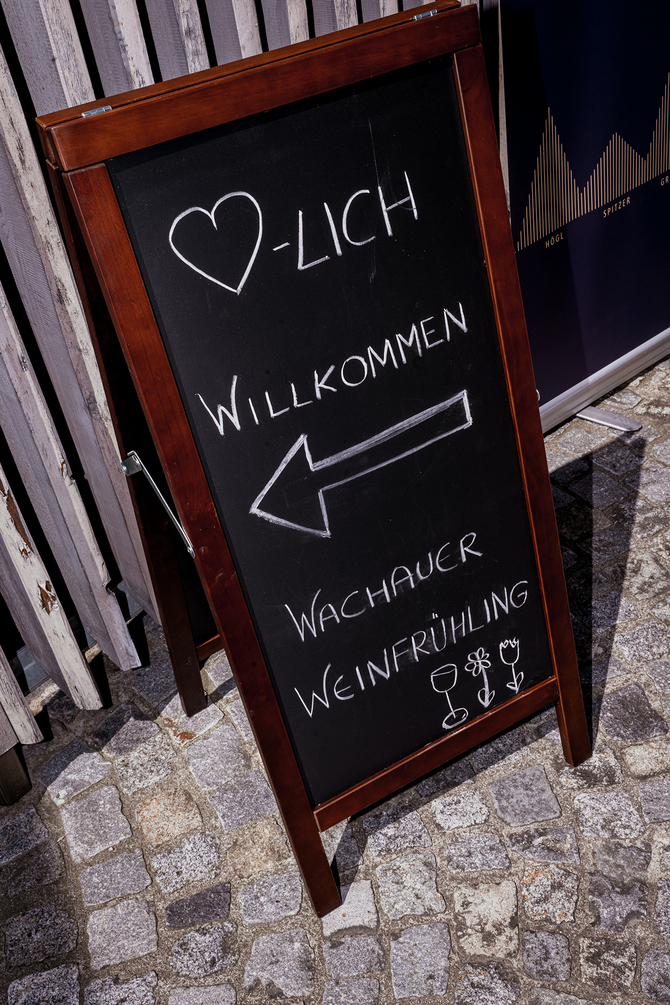 ♡-LICH
WILLKOMMEN
WACHAUER
WEINFRÜHLING
HÖGL
SPITZER
GR